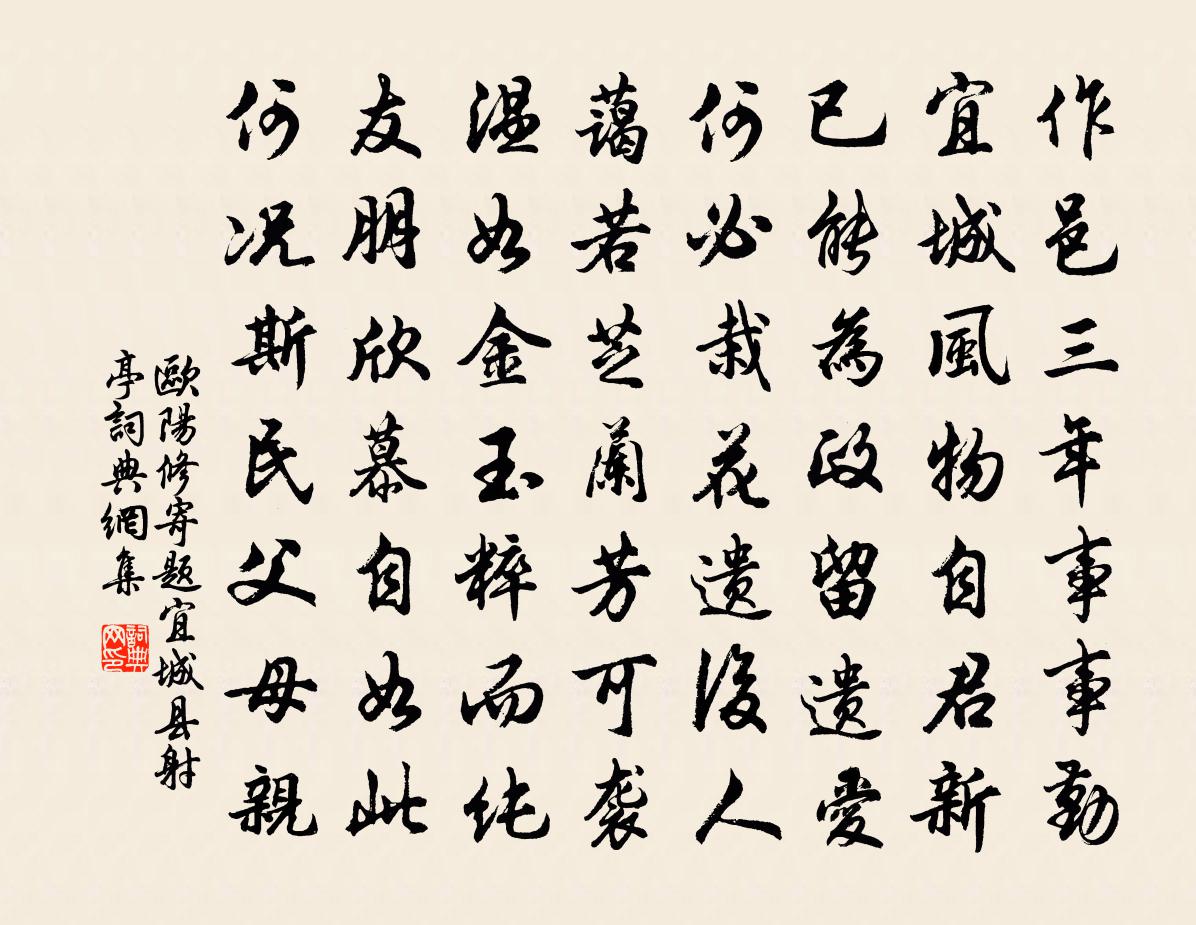 作邑三年事事勤
宜城風物自君新
已能為政留遺愛
何必栽花遺後人
藹若芝蘭芳可袭
温如金玉粹而纯
友朋欣慕自如此
何况斯民父母親
歐陽修寄題宜城县射
亭詞典網集
詞典网印